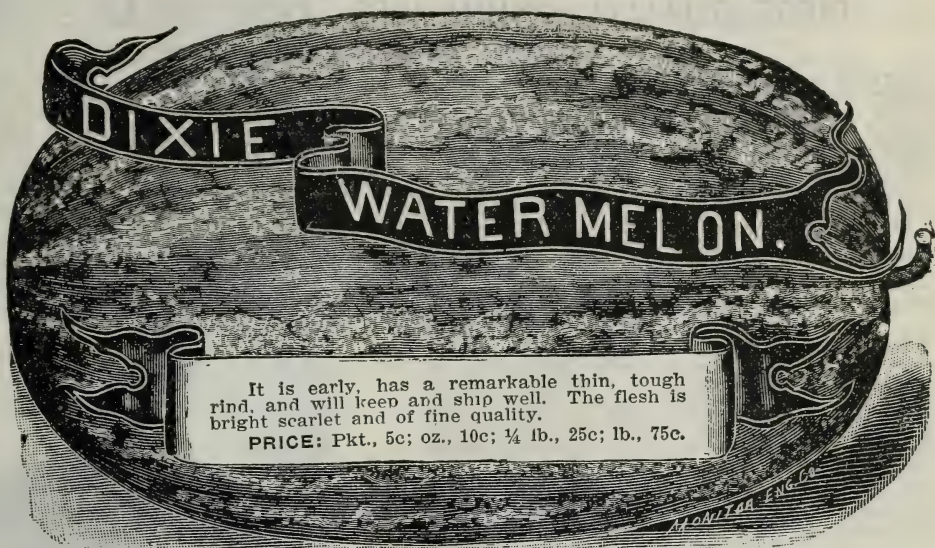 DIXIE
WATER MELON.
It is early, has a remarkable thin, tough
rind, and will keep and ship well. The flesh is
bright scarlet and of fine quality.
PRICE: Pkt., 5c; oz., 10c; ¼ lb., 25c; lb., 75c.
MONITOR ENG. CO.